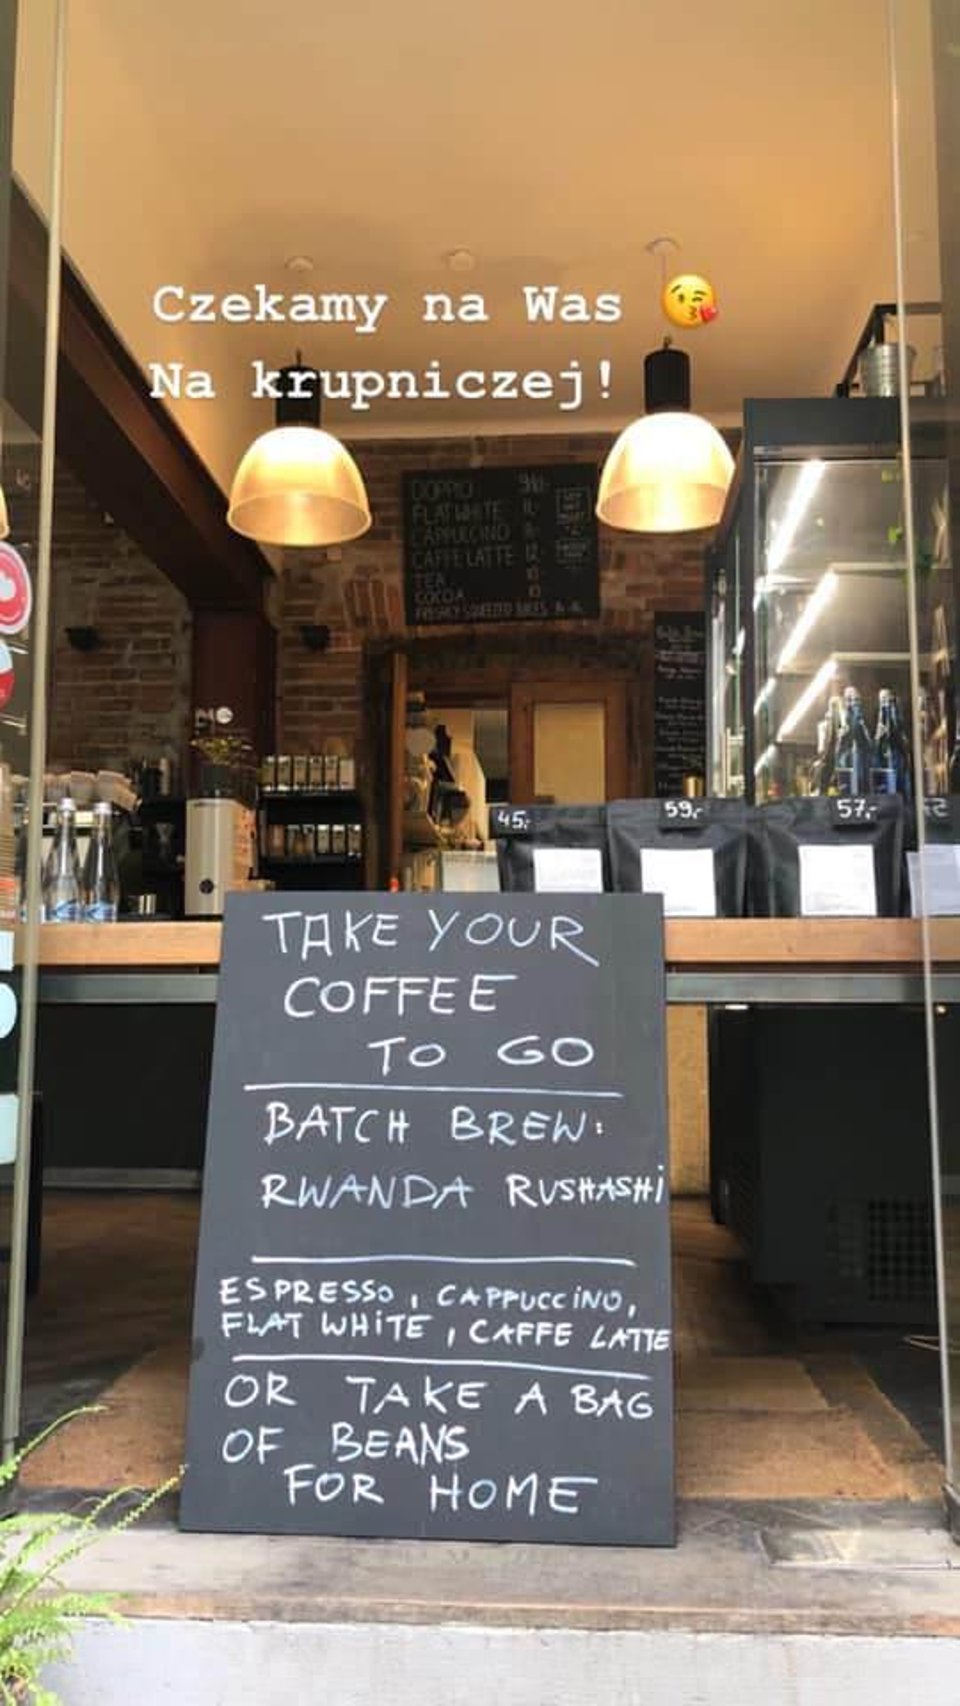 Czekamy na Was 😘
Na krupniczej!
DOPPIO
FLAT WHITE
CAPPUCCINO
CAFFE LATTE 12
TEA 10
COCOA 10
45,-
59,-
57,-
TAKE YOUR
COFFEE
TO GO
BATCH BREW:
RWANDA RUSHASHi
ESPRESSO, CAPPUCCiNO,
FLAT WHiTE, CAFFE LATTE
OR TAKE A BAG
OF BEANS
FOR HOME